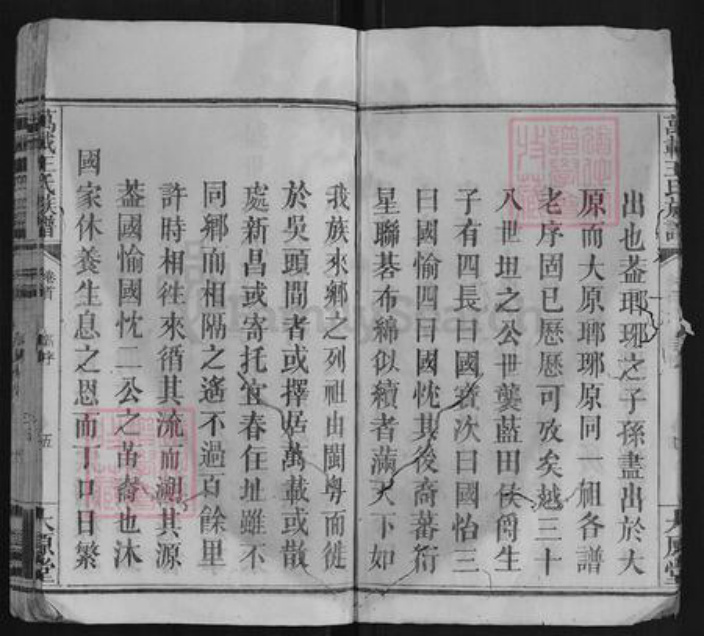 出也葢瑯琊之子孫盡出於大
原而大原瑯琊原同一祖各譜
老序固已歷歷可攷矣越三十
八世坦之公世襲藍田侯爵生
子有四長曰國寳次曰國怡三
曰國愉四曰國忱其後裔蕃衍
星聯棊布綿似續者滿天下如
我族來鄉之列祖由閩粤而徙
於吳頭間者或擇居萬載或散
處新昌或寄托宜春住址雖不
同鄉而相隔之遙不過百餘里
許時相徃來循其流而溯其源
葢國愉國忱二公之苗裔也沐
國家休養生息之恩而丁口日繁
萬載王氏族譜
卷首
五
大原堂
萬載王氏族譜
大原堂